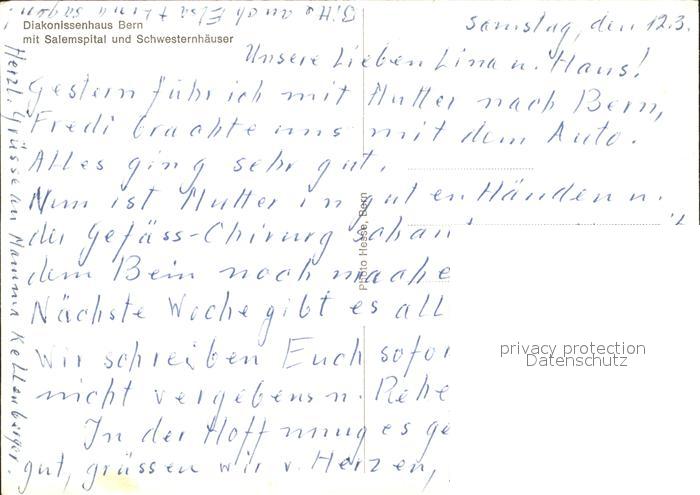 Diakonissenhaus Bern
mit Salemspital und Schwesternhäuser
Samstag, den 12.3.
Unsere Lieben Lina u. Hans!
Gestern fuhr ich mit Mutter nach Bern,
Fredi brachte uns mit dem Auto.
Alles ging sehr gut.
Nun ist Mutter in guten Händen u.
der Gefäss-Chirurg schaut
dem Bein noch mache
Nächste Woche gibt es all
Wir schreiben Euch sofor
nicht vergebens u. Rehe
In der Hoffnung es ge
gut, grüssen wir v. Herzen,
Herzl. Grüsse an Mamma Kellenberger.
Bitte auch Elsa + Lina sagen!
Photo Hesse, Bern
privacy protection
Datenschutz